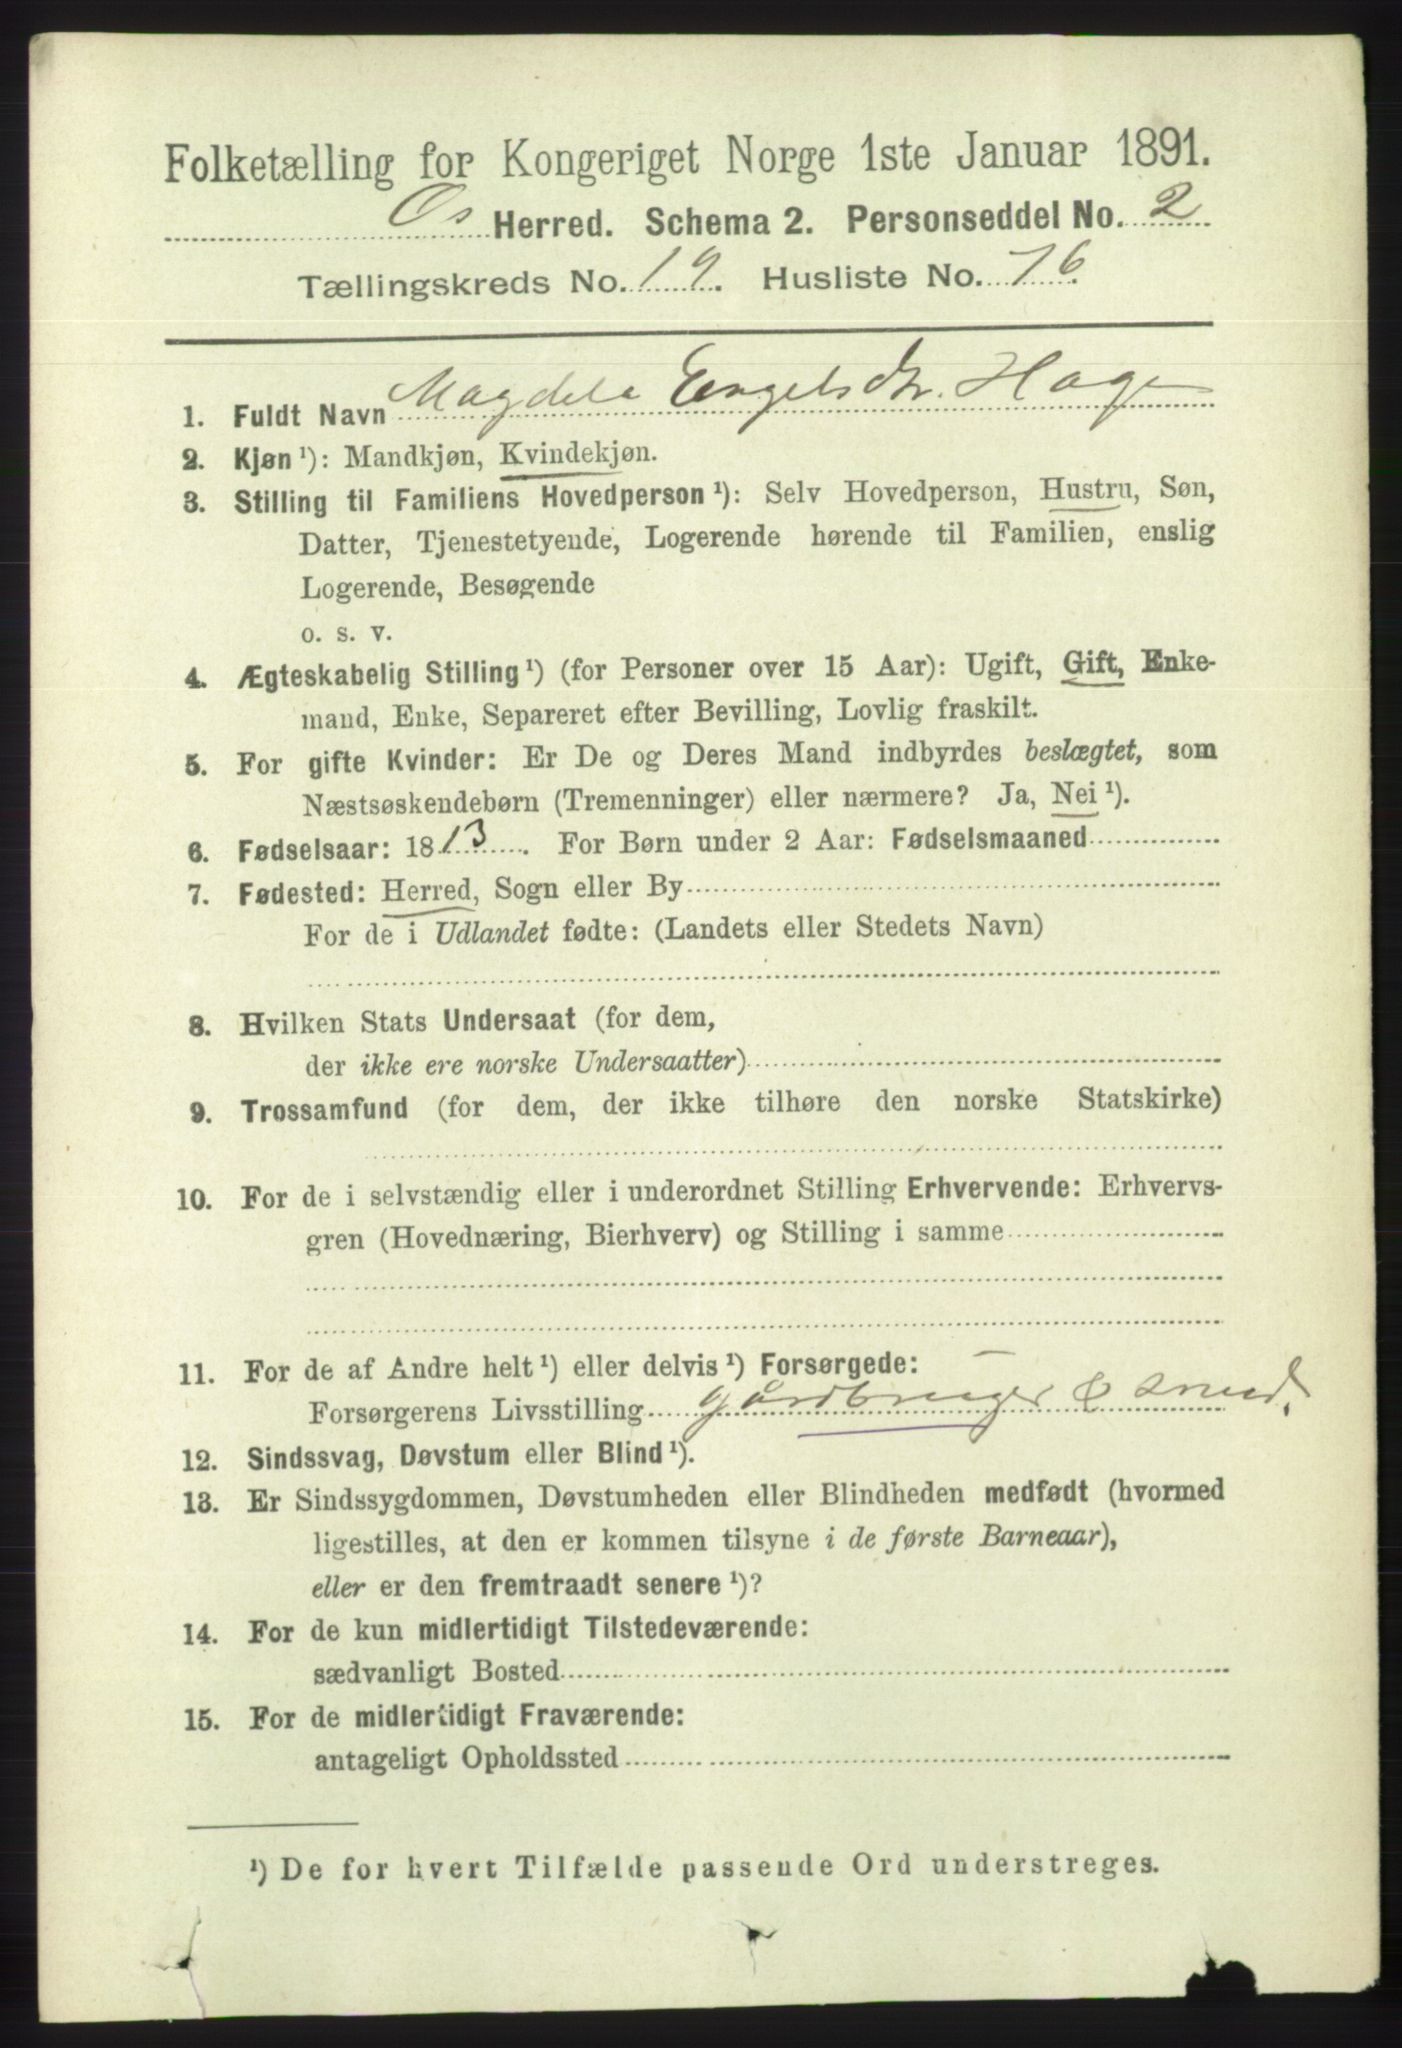 Folketælling for Kongeriget Norge 1ste Januar 1891.
Os Herred. Schema 2. Personseddel No. 2
Tællingskreds No. 19. Husliste No. 76
1. Fuldt Navn Magdela Engelsdtr. Hage
2. Kjøn ¹): Mandkjøn, Kvindekjøn.
3. Stilling til Familiens Hovedperson ¹): Selv Hovedperson, Hustru, Søn,
Datter, Tjenestetyende, Logerende hørende til Familien, enslig
Logerende, Besøgende
o. s. v.
4. Ægteskabelig Stilling ¹) (for Personer over 15 Aar): Ugift, Gift, Enke-
mand, Enke, Separeret efter Bevilling, Lovlig fraskilt.
5. For gifte Kvinder: Er De og Deres Mand indbyrdes beslægtet, som
Næstsøskendebørn (Tremenninger) eller nærmere? Ja, Nei ¹).
6. Fødselsaar: 1813. For Børn under 2 Aar: Fødselsmaaned
7. Fødested: Herred, Sogn eller By
For de i Udlandet fødte: (Landets eller Stedets Navn)
8. Hvilken Stats Undersaat (for dem,
der ikke ere norske Undersaatter)
9. Trossamfund (for dem, der ikke tilhøre den norske Statskirke)
10. For de i selvstændig eller i underordnet Stilling Erhvervende: Erhvervs-
gren (Hovednæring, Bierhverv) og Stilling i samme
11. For de af Andre helt ¹) eller delvis ¹) Forsørgede:
Forsørgerens Livsstilling gårdbruger & smed.
12. Sindssvag, Døvstum eller Blind ¹).
13. Er Sindssygdommen, Døvstumheden eller Blindheden medfødt (hvormed
ligestilles, at den er kommen tilsyne i de første Barneaar),
eller er den fremtraadt senere ¹)?
14. For de kun midlertidigt Tilstedeværende:
sædvanligt Bosted
15. For de midlertidigt Fraværende:
antageligt Opholdssted
¹) De for hvert Tilfælde passende Ord understreges.